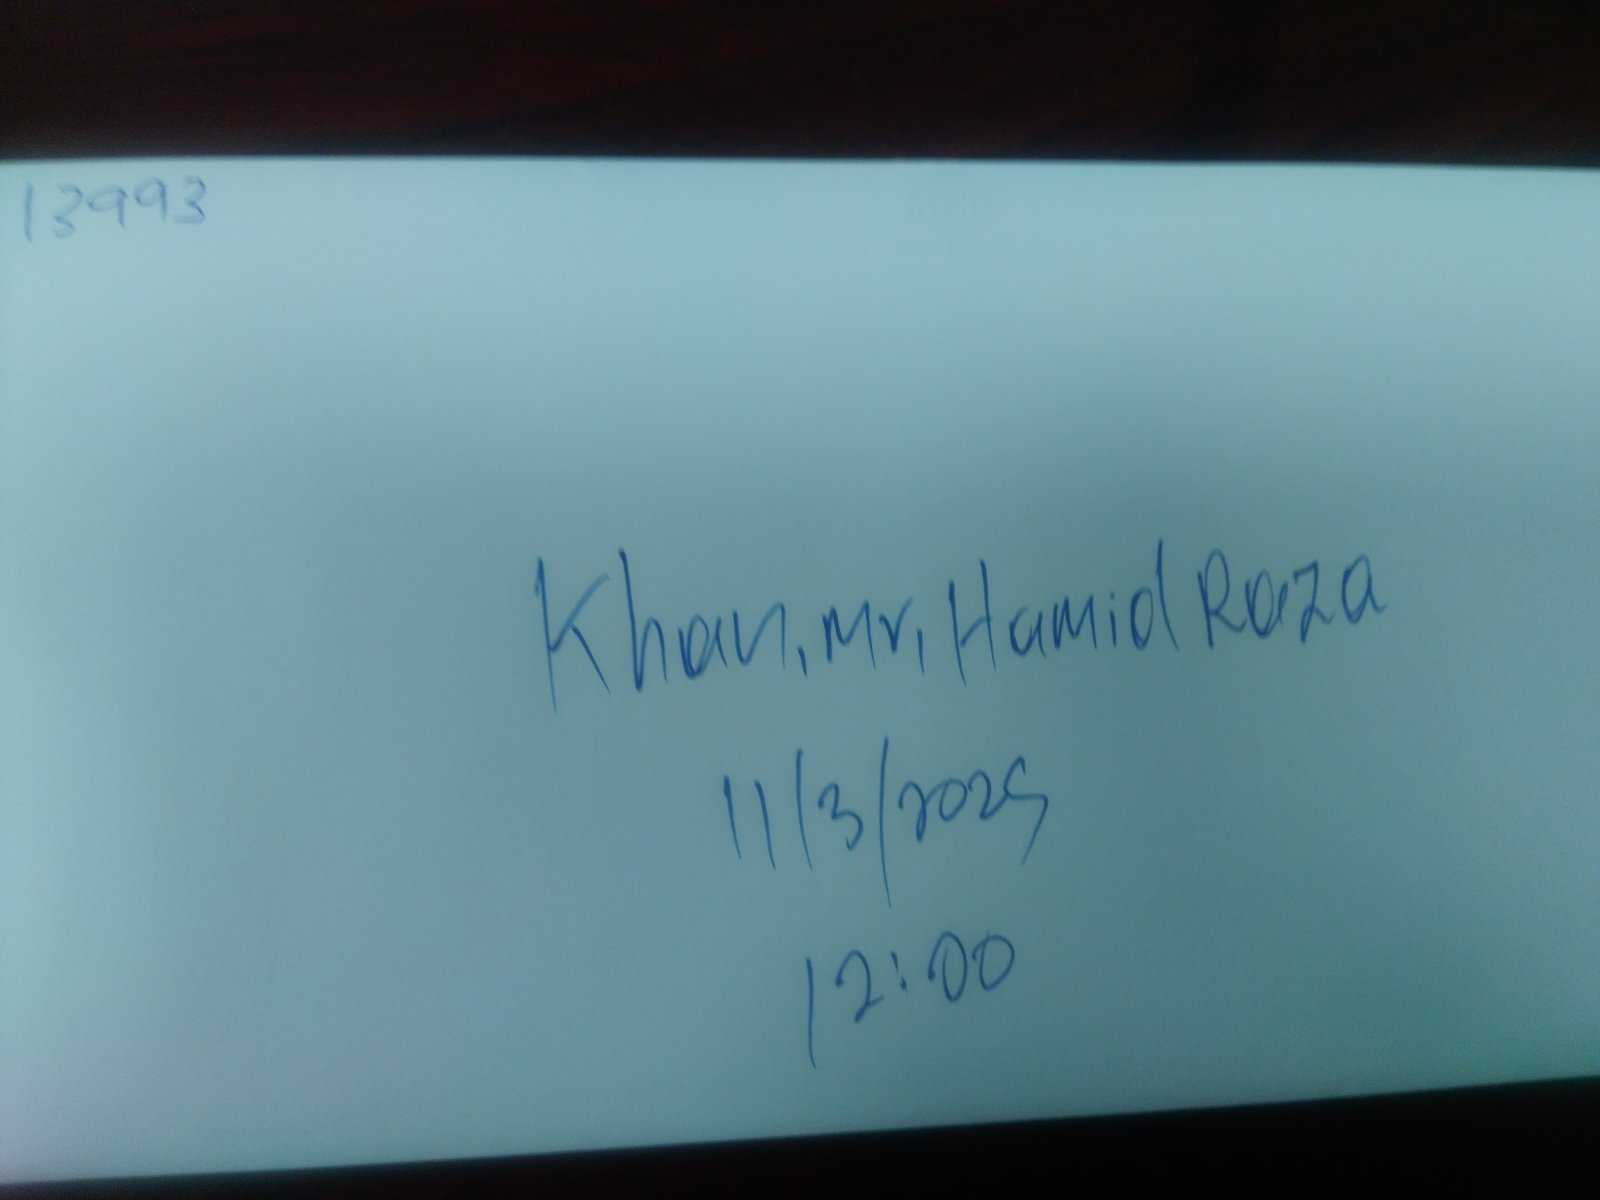 13993
Khan, Mr, Hamid Raza
11/3/2025
12:00